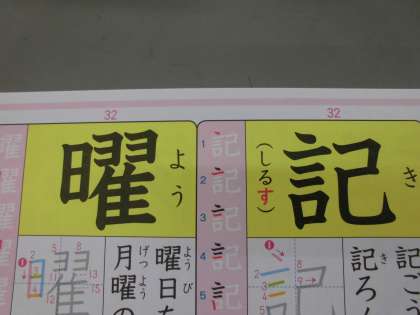 32
記
き
（しるす）
1
2
3
4
5
記ごう
記ろん
32
曜
よう
曜日を
ようび
月曜の
げつよう